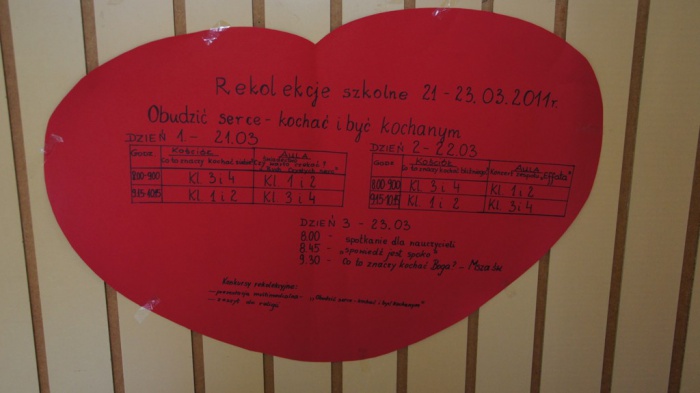 Rekolekcje szkolne 21-23.03.2011r.
Obudzić serce - kochać i być kochanym
DZIEŃ 1.- 21.03
Godz. Kościół Aula
Co to znaczy kochać
8.00-9.00 Kl. 3 i 4 Kl. 1 i 2
9.15-10.15 Kl. 1 i 2 Kl. 3 i 4
DZIEŃ 2- 22.03
Godz. Kościół Aula
Co to znaczy kochać bliźniego? Koncert zespołu "Effatha"
8.00-9.00 Kl. 3 i 4 Kl. 1 i 2
9.15-10.15 Kl. 1 i 2 Kl. 3 i 4
DZIEŃ 3 - 23.03
8.00 - spotkanie dla nauczycieli
8.45 - "spowiedź jest spoko"
9.30 - Co to znaczy kochać Boga? - Msza św
Konkursy rekolekcyjne:
- prezentacja multimedialna - "Obudzić serce - kochać i być kochanym"
- zeszyt do religii